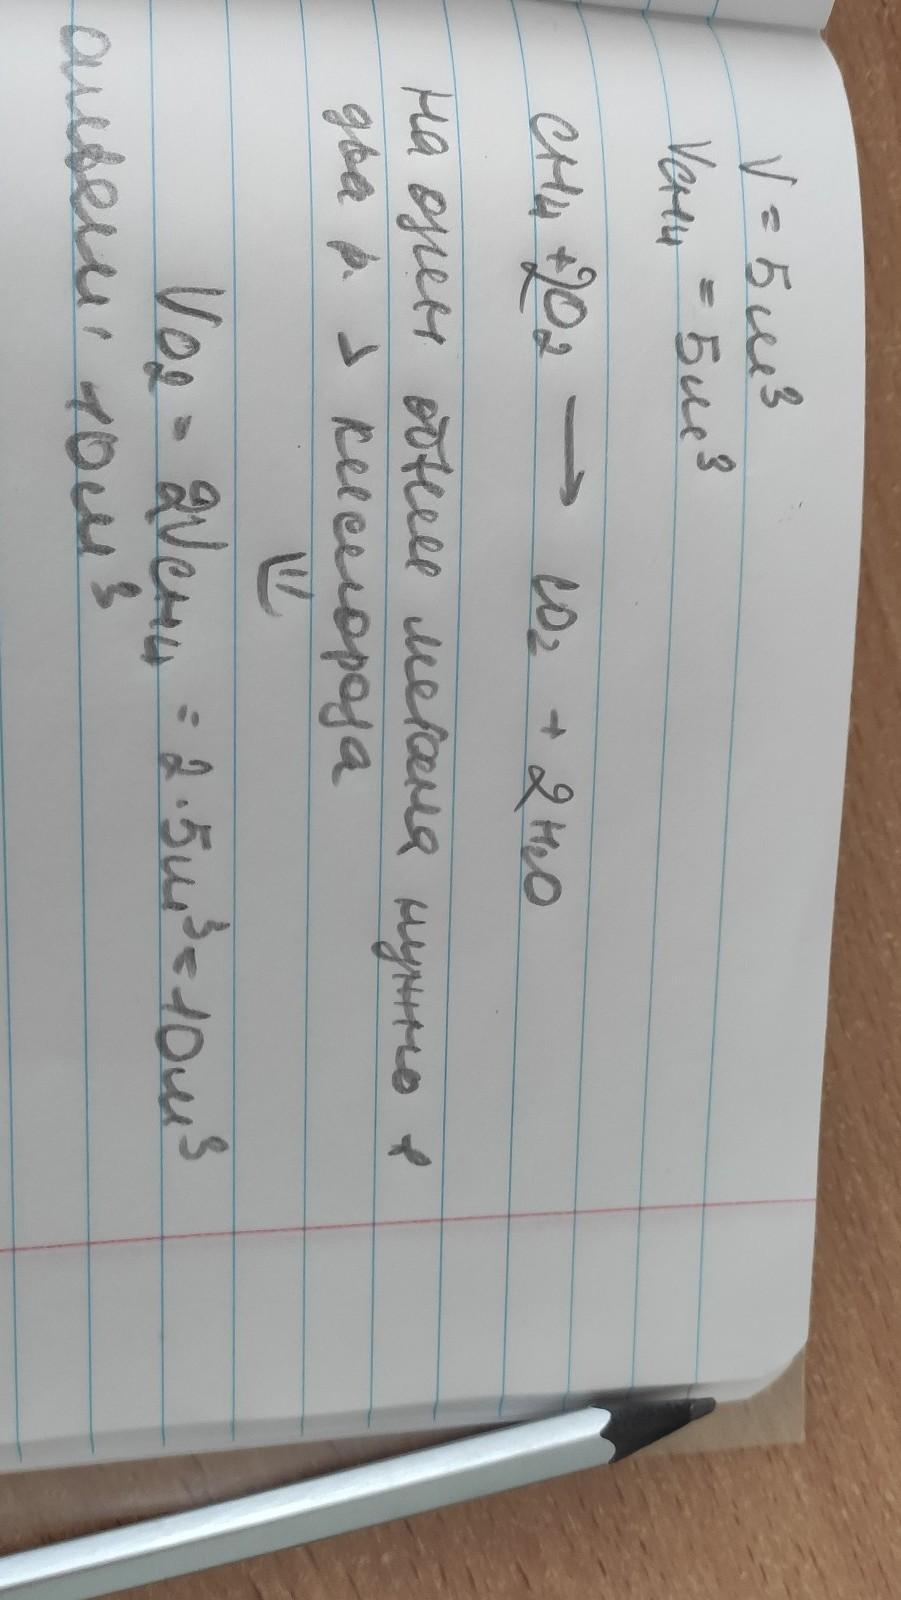 V = 5м³
Vсн₄ = 5м³
CH₄ + 2O₂ → CO₂ + 2H₂O
На один объем метана нужно в
два р. > кислорода
Vo₂ = 2Vсн₄ = 2 · 5м³ = 10м³
ответ: 10м³